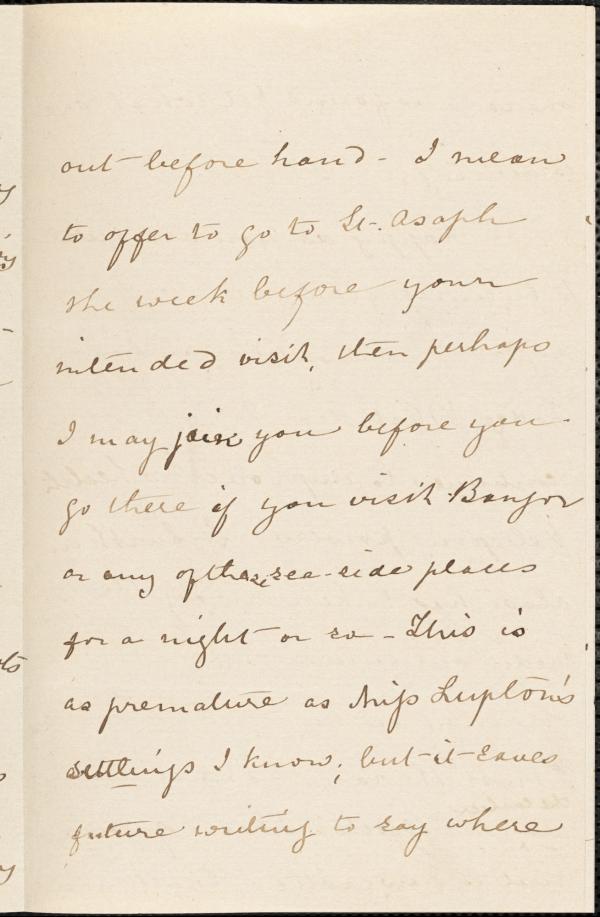 out before hand - I mean
to offer to go to St. Asaph
the week before your
intended visit, then perhaps
I may join you before you
go there if you visit Bangor
or any of those sea-side places
for a night or so - This is
as premature as Miss Lupton's
settlings I know; but it saves
future writing to say where